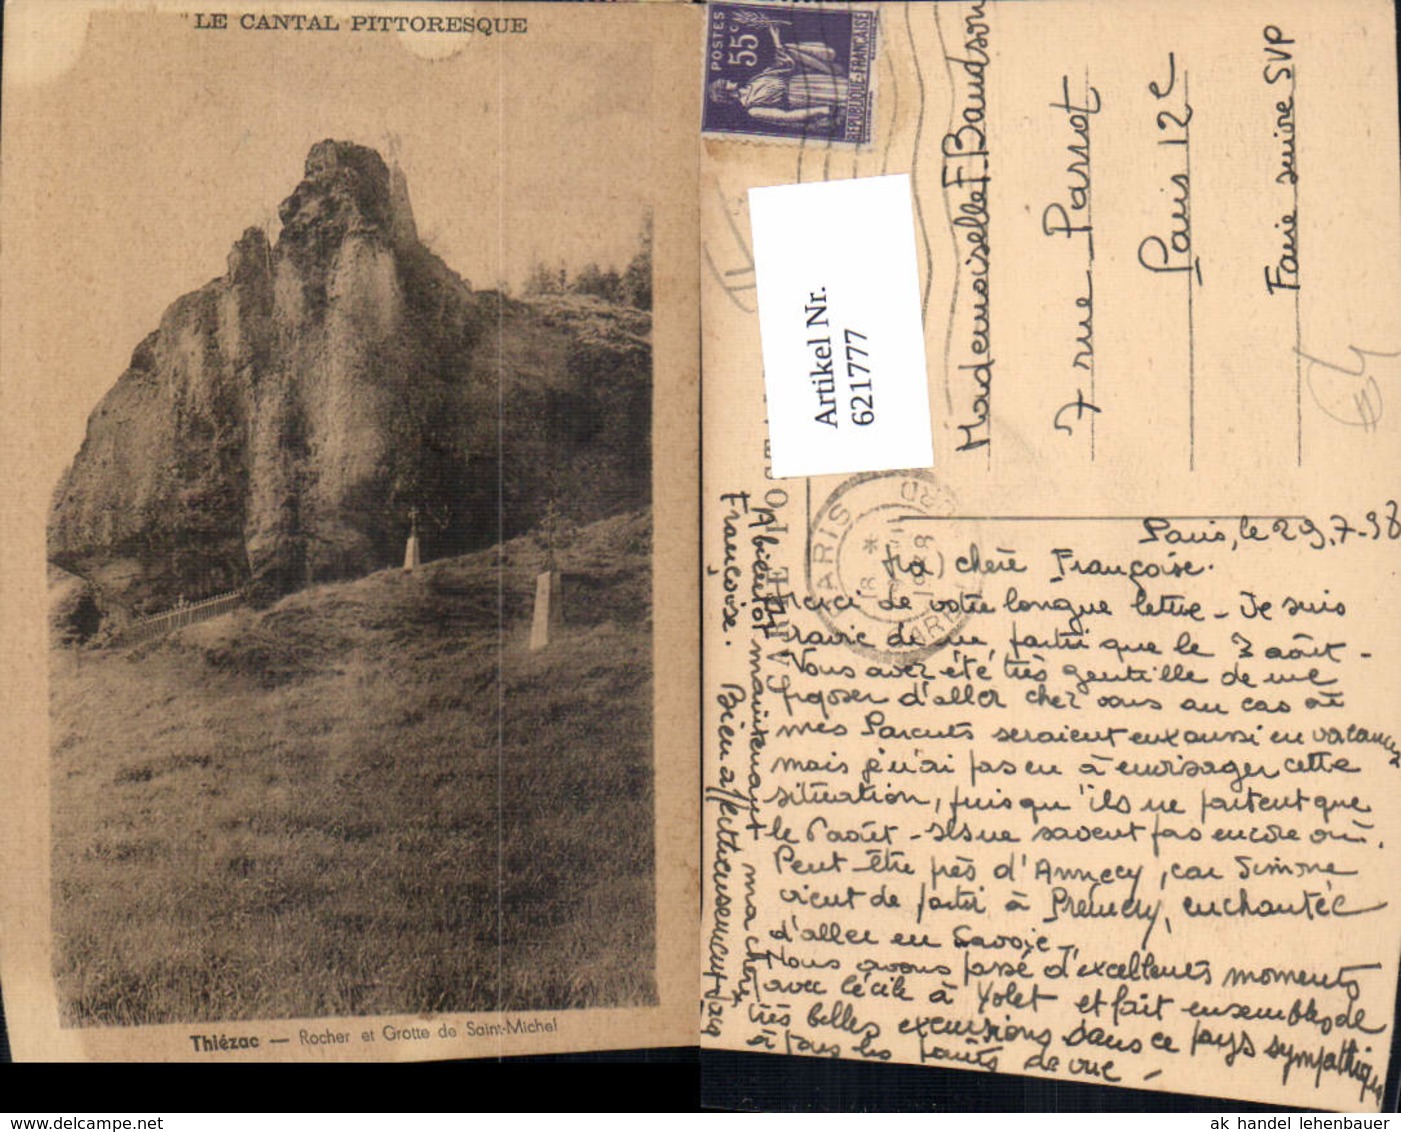 "LE CANTAL PITTORESQUE
Thiézac — Rocher et Grotte de Saint-Michel
POSTES
55c
REPUBLIQUE-FRANÇAISE
Artikel Nr.
621777
Mademoiselle F. Baudson
7 rue Parrot
Paris 12e
Faire suivre SVP
PARIS
1938
Paris, le 29.7-38
Ma chère Françoise.
Merci de votre longue lettre - Je suis
ravie de ne partir que le 3 août -
Vous avez été très gentille de me
proposer d'aller chez vous au cas où
mes Parents seraient eux aussi en vacances
mais je n'ai pas eu à envisager cette
situation, puisqu'ils ne partent que
le 6 août - Ils ne savent pas encore où.
Peut-être près d'Annecy, car Simone
vient de partir à Prémery, enchantée
d'aller en Savoie -
Nous avons passé d'excellents moments
avec Cécile à Yolet et fait ensemble de
très belles excursions dans ce pays sympathique
à tous les points de vue -
A bientôt maintenant ma chère
Françoise. Bien affectueusement
ak handel lehenbauer